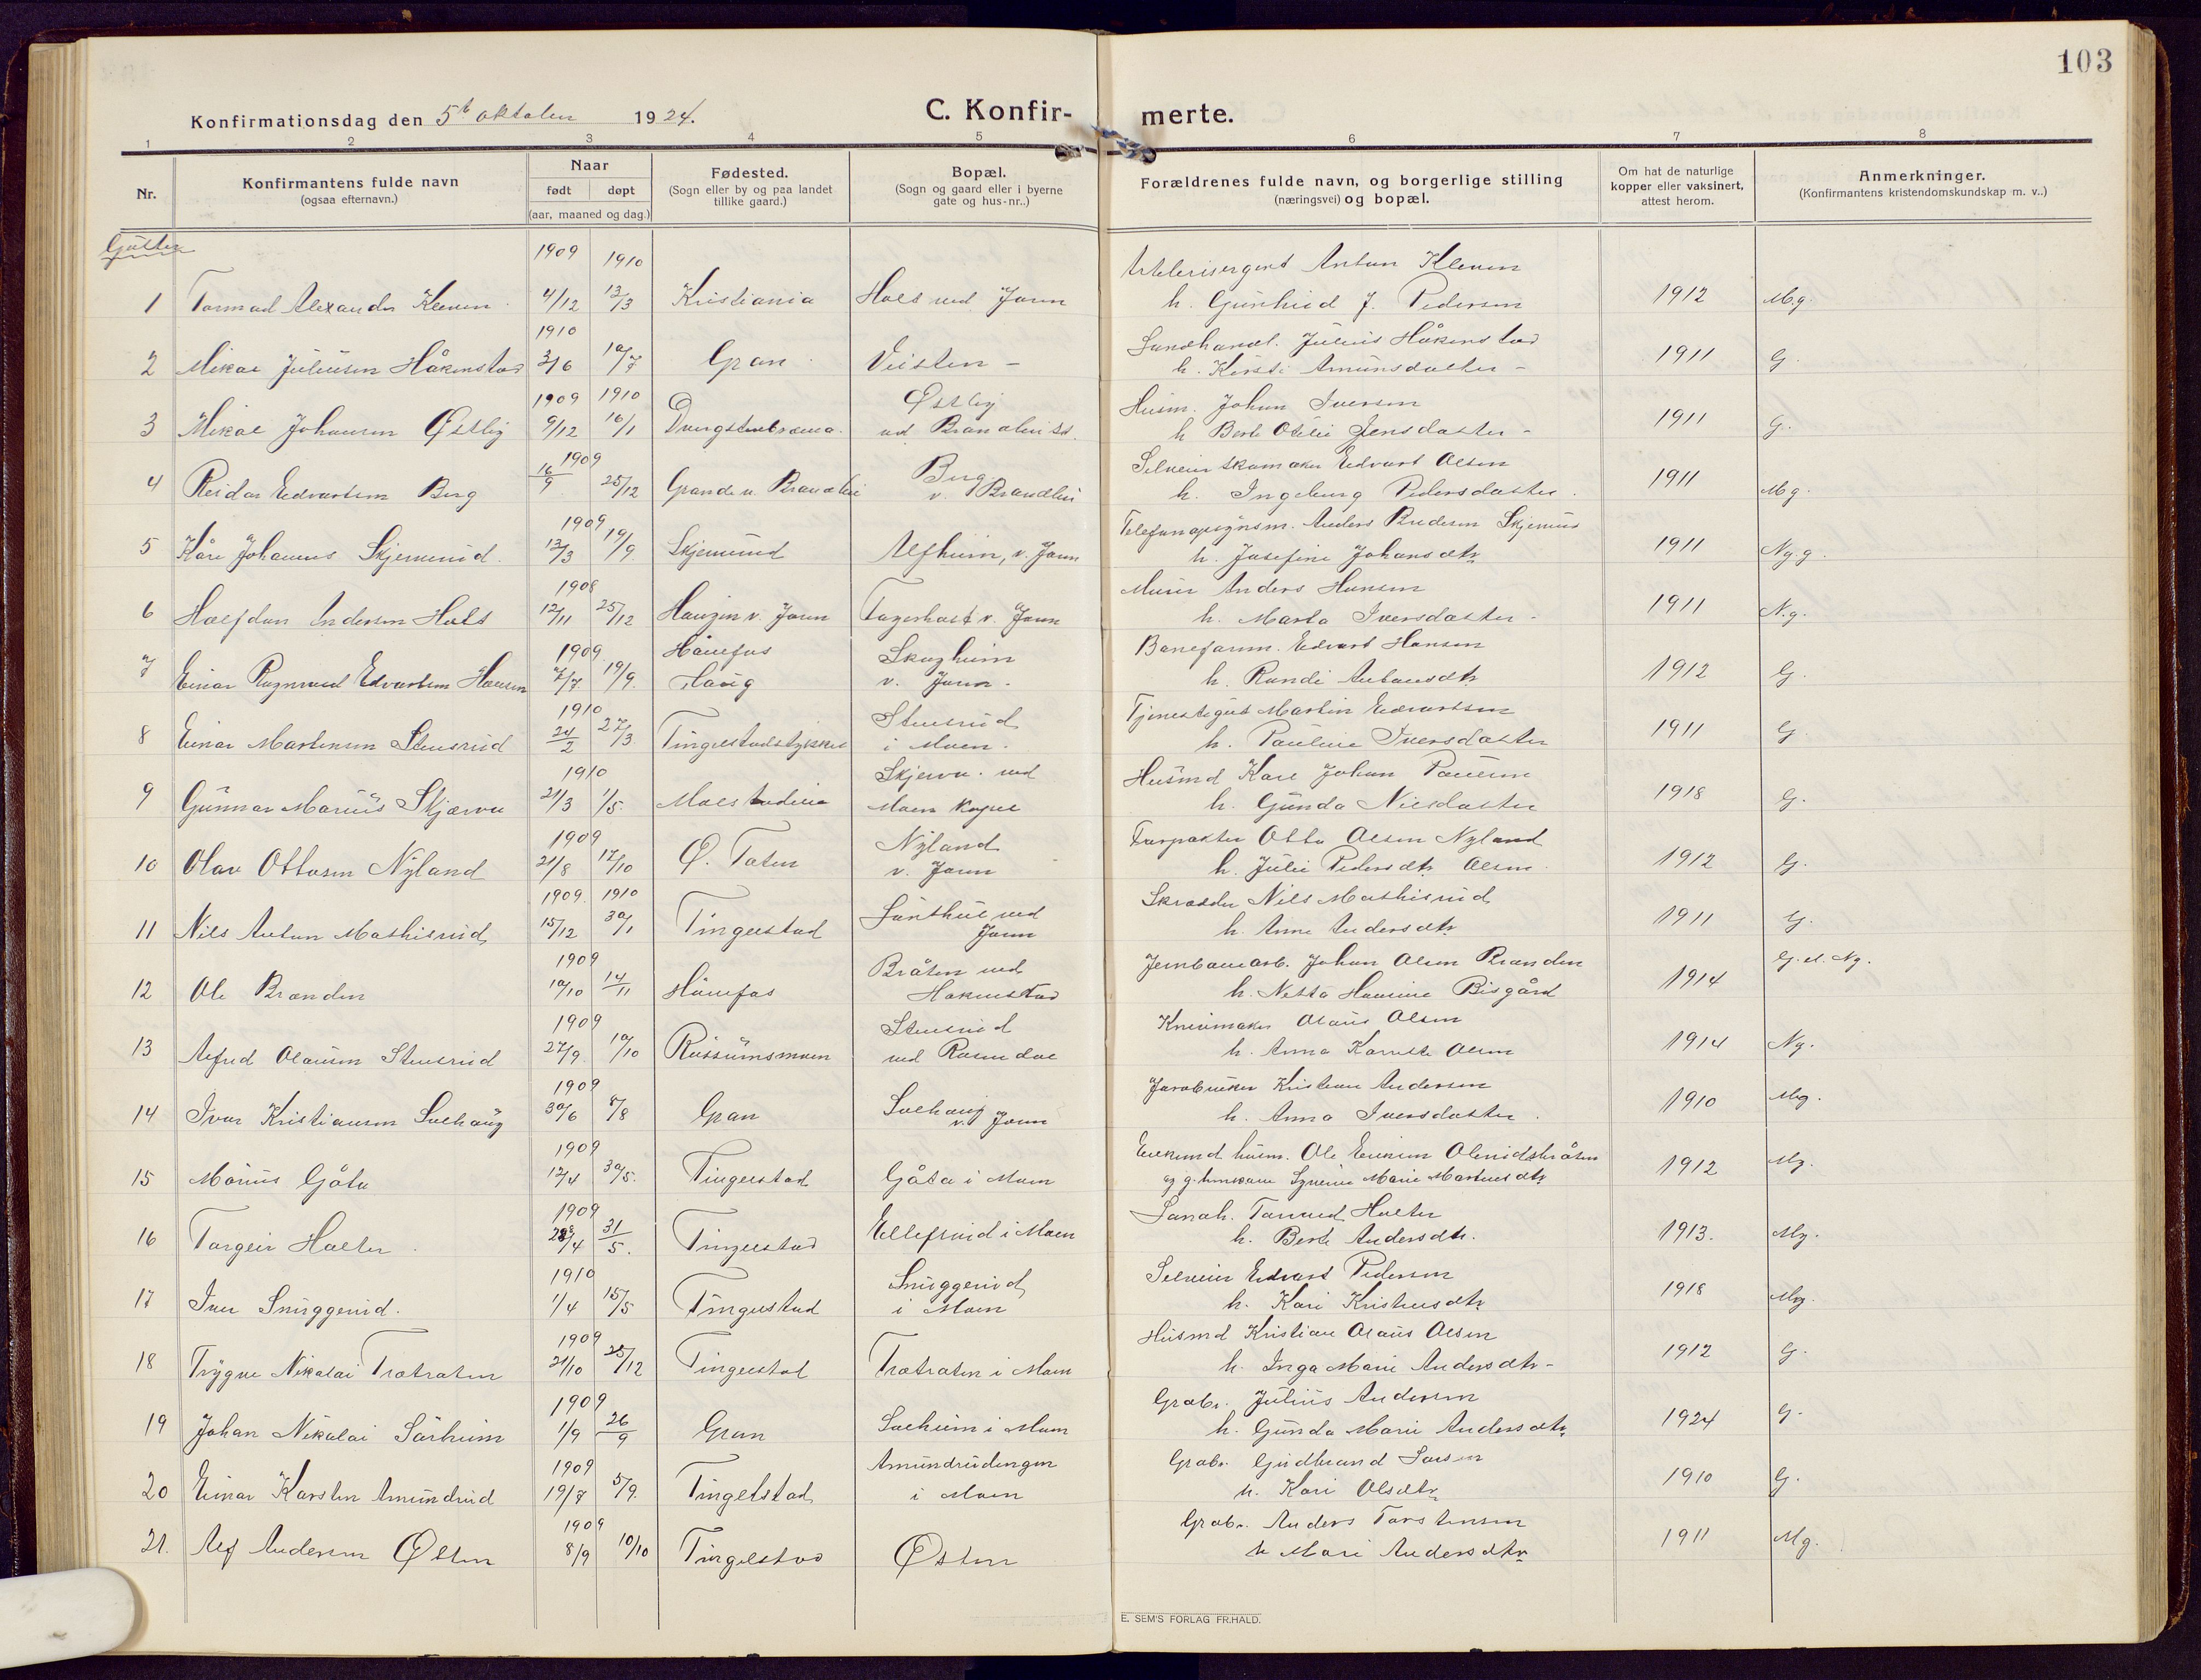 103
Konfirmationsdag den 5te oktober 1924.
C. Konfir- merte.
1 2 3 4 5 6 7 8
Nr.
Konfirmantens fulde navn
(ogsaa efternavn.)
Naar
født døpt
(aar, maaned og dag.)
Fødested.
(Sogn eller by og paa landet
tillike gaard.)
Bopæl.
(Sogn og gaard eller i byerne
gate og hus-nr..)
Forældrenes fulde navn, og borgerlige stilling
(næringsvei) og bopæl.
Om hat de naturlige
kopper eller vaksinert,
attest herom.
Anmerkninger.
(Konfirmantens kristendomskundskap m. v..)
Gutter
1909 1910 Anton Kleven
1 Tormod Alexander Kleven 4/12 13/3 Kristiania Hols ved Jaren h. Gunhild J. Pedersen 1912 Mg.
1910 Julius Håkenstad
2 Mikal Juliusen Håkenstad 3/6 10/7 Gran Veisten h. Kirsti Amundsdatter 1911 G.
1909 1910 Østby Husm. Johan Iversen
3 Mikal Johansen Østby 9/12 16/1 ved Brandbu st. h. Berte Otelie Jensdatter 1911 G.
1909 Berg Selveier skomaker Edvart Olsen
4 Reidar Edvartsen Berg 16/9 25/12 Grande v. Brandbu v. Brandbu h. Ingeborg Pedersdatter 1911 Mg.
1909 Telefonopsynsm. Anders Skjerven
5 Kåre Johannes 13/3 19/9 Alfheim, v. Jaren h. Josefine Johansdtr 1911 Ng.g.
1908 Murer Anders Hansen
6 Halfdan Andersen Hols 12/11 25/12 Haugen v. Jaren Fagerhaet v. Jaren h. Marta Iversdatter 1911 N.g.
1909 Hønefos Skogheim Baneform. Edvart Hansen
7 Einar Ragnvald Edvartsen Hansen 7/7 19/9. Haug v. Jaren h. Randi Antonsdtr 1912 G.
1910 Stensrud Tjenestegut Martin Edvartsen
8 Einar Martinsen Stensrud 24/2 27/3 Tingelstadstykket i Moen. h. Pauline Iversdatter 1911 G.
1910 Skjerva ved Husmd Karl Johan Paulsen
9 Gunnar Marius Skjærva 21/3 1/5. Moen kapel h. Gunda Nilsdatter 1918 G.
1909 Nyland Forpakter Otto Olsen Nyland
10 Olav Ottosen Nyland 21/8 17/10 Ø. Toten v. Jaren h. Julie Pedersdtr Olsen 1912 G.
1909. 1910 ved Skrædder Nils Mathisrud
11 Nils Anton Mathisrud 15/12 30/1 Tingelstad Jaren h. Anne Andersdtr 1911 G.
1909 Bråten ved Jernbanearb. Johan Olsen Brænden G. el. Ng.
12 Ole Brænden 10/10 14/11 Hønefos Håkenstad h. Netta Haurine Bisgård 1914
1909 Stensrud Olaus Olsen
13 Alfred Olausen Stensrud 27/9. 10/10 Røssumsmoen ved Rosendal h. Anna Karette Olsen 1914 Ng.
1909 Solhaug Jordbruker Kristian Andersen
14 Ivar Kristiansen Solhaug 30/6 8/8 Gran v. Jaren h. Anna Iversdatter. 1910 Mg.
1909 Enkemand husm. Ole Eriksen Olerudsbråten
15 Marius Gåta 12/4 30/5. Tingelstad Gåta i Moen Marie Martinsdtr 1912 Mg.
1909 Halter
16 Torgeir Halter 28/4 31/5. Tingelstad Ellefsrud i Moen h. Berte Andersdtr. 1913. Mg.
1910 Snuggerud Selveier Edvart Pedersen
17 Iver Snuggerud. 1/4 15/5 Tingelstad i Moen h. Kari Kristensdtr 1918 Mg.
1909 Husmd Kristian Olaus Olsen
18 Trygve Nikolai Trætraten 21/10 25/12 Tingelstad Trætraten i Moen h. Inga Marie Andersdtr 1912 G.
1909 Grabr. Julius Andersen
19 Johan Nikolai Sørheim 1/9 26/9 Gran Solheim i Moen h. Gunda Marie Andersdtr 1924 G.
1909 Amundrudengen Grabr. Gudbrand Larsen
20 Einar Karsten Amundrud 19/7 5/9. Tingelstad i Moen h. Kari Olsdtr 1910 G.
1909 Grabr. Anders Torstensen
21. Alf Andersen Østen 8/9 10/10 Tingelstad Østen h Mari Andersdtr 1911 Mg.
E. SEM'S FORLAG FR.HALD.